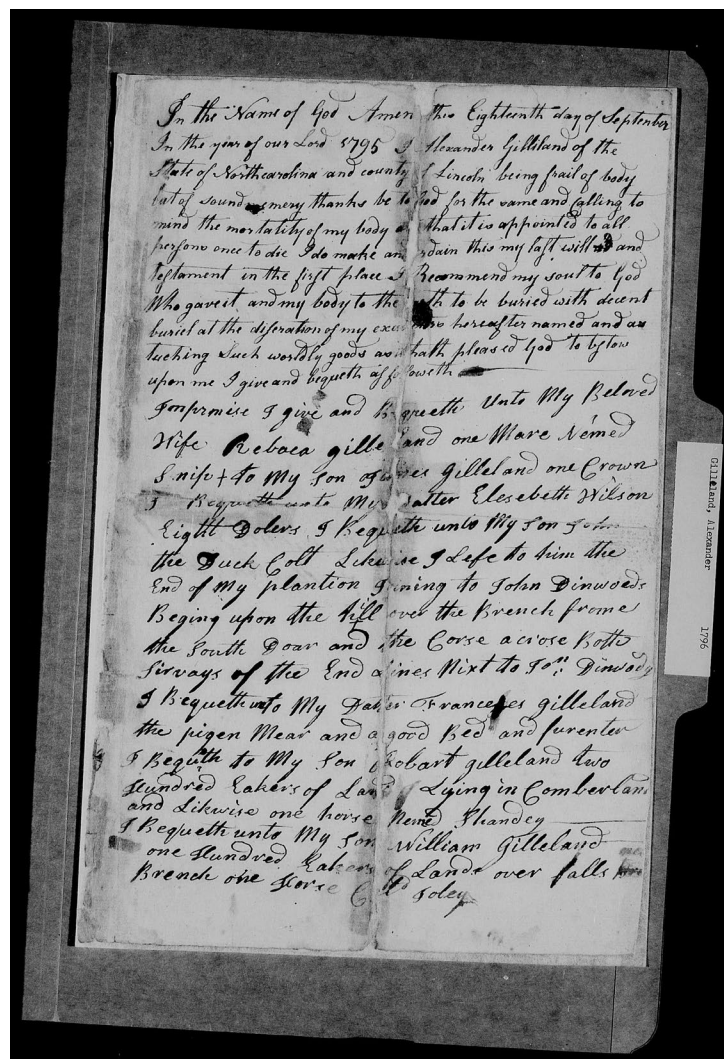 In the Name of God Amen this Eighteenth day of September
In the year of our Lord 1795 I Alexander Gilleland of the
State of Northcarolina and county of Lincoln being frail of body
but of sound memery thanks be to God for the same and Calling to
mind the mortality of my body and that it is appointed to all
persons once to die I do make and ordain this my last will and
testament in the first place I Recommend my soul to God
Who gave it and my body to the earth to be buried with decent
buriel at the diseration of my executors hereafter named and as
tuching Such worldly goods as it hath pleased God to bstow
upon me I give and bequeth as followeth
Imprmise I give and Bequeth Unto My Beloved
Wife Rebaca gilleland one Mare Nemed
Snip + to My Son James Gilleland one Crown
I Bequeth unto My Datter Elesebeth Wilson
Eight Dolers I Bequeth unto My Son John
the Duck Colt Likwise I Lefe to him the
End of My plantion Joining to John Dinwoeds
Beging upon the hill over the Brench frome
the South Doar and the Corse acrose Both
Sirvays of the End Lines Nixt to Jon: Dinwody
I Bequeth unto My Dater Franceses gilleland
the pigen Mear and a good Bed and furenter
I Bequth to My Son Robart gilleland two
Hundred Eakers of Land Lying in Comberland
and Likwise one horse Nemd Shandey
I Bequeth unto My Son William Gilleland
one Hundred Eakers of Lands over falls
Brench one Horse Cold Foley
Gilleland, Alexander 1796